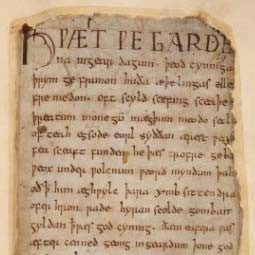 HǷÆT ǷE GARDE
na ingear dagum. þeod cyninga
þrym ge frunon huða æþelingas elle
fre medon. oft scyld scefing sceaþe
þreatum monegū mægþum meodo setl
of teah egsode eorl syððan ærest ƿear
fea sceaft funden he þæs frofre geba
ƿeox under ƿolcnum ƿeorð myndum þah
oð ꝥ him æghƿylc þara ymb sittendra
ofer hron rade hyran scolde gomban
gyldan ꝥ ƿæs god cyning. ðæm eafera ƿæs
æfter cenned geong ingeardum þone god